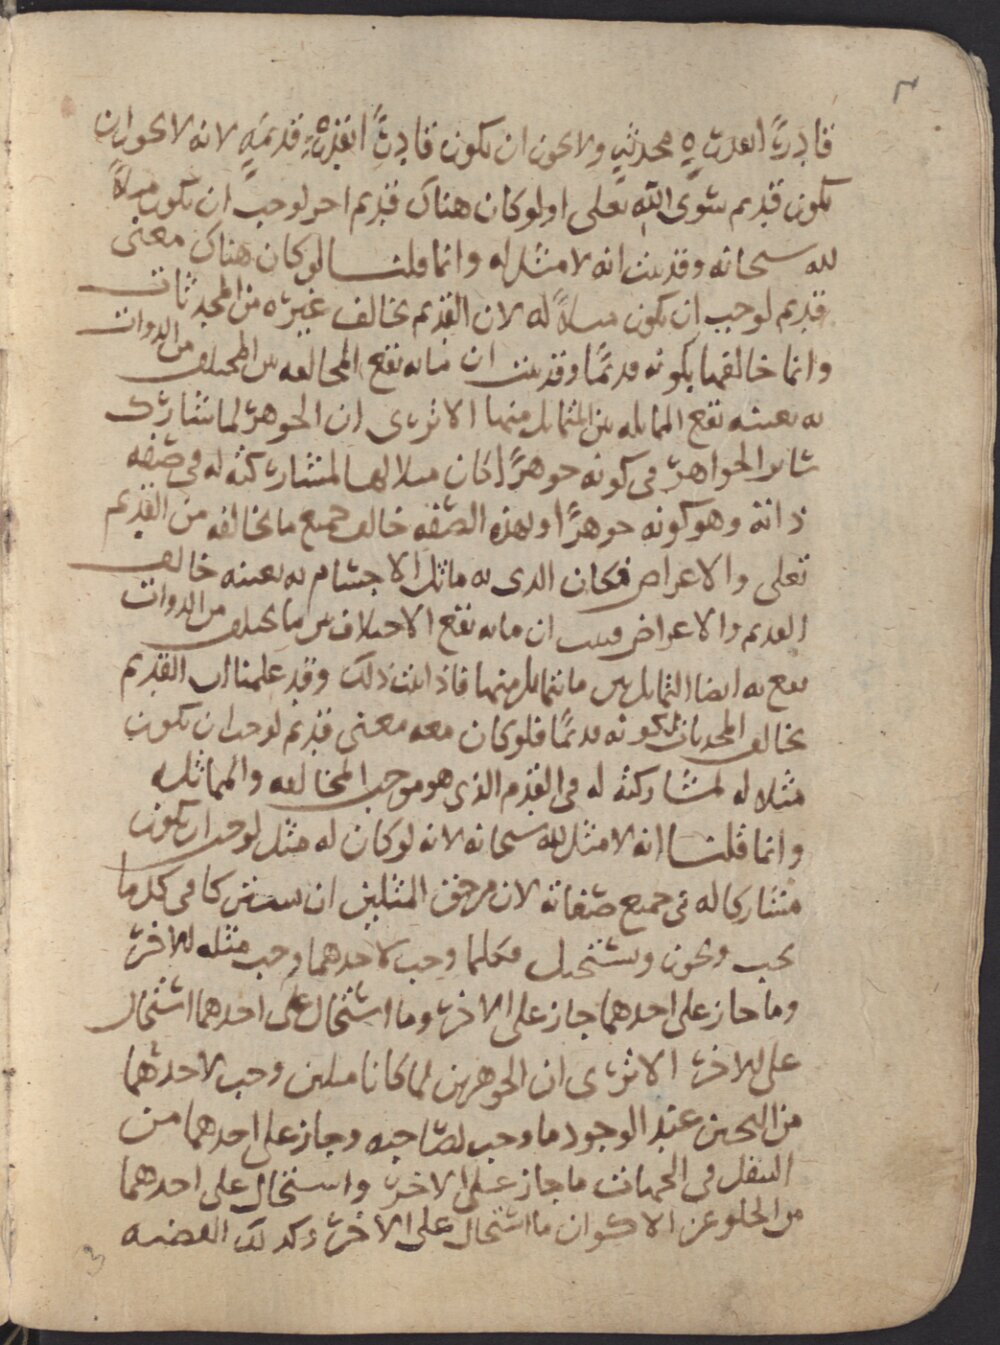 قادرًا بقدرةٍ محدثةٍ ولا يجوز ان يكون قادرًا بقدرةٍ قديمةٍ لانه لا يجوز ان
يكون قديم سوى الله تعلى اولو كان هناك قديم اخر لوجب ان يكون مثلاً
لله سبحانه وقد بينت انه لا مثل له وانما قلنا لو كان هناك معنى
قديم لوجب ان يكون مثلاً له لان القديم يخالف غيره من المحدثات
وانما خالفها بكونه قديمًا وقد بينت ان ما به تقع المخالفه بين المختلف من الذوات
به بعينه تقع المماثله بين المتماثل منها الا ترى ان الجوهر لما شارك
سائر الجواهر في كونه جوهرًا كان مثلا لها لمشاركته له في صفه
ذاته وهو كونه جوهرًا وبهذه الصفه خالف جميع ما يخالفه من القديم
تعلى والاعراض فكان الذي به ماثل الاجسام به بعينه خالف
القديم والاعراض فبينت ان ما به تقع الاختلاف بين ما يختلف من الذوات
يقع به ايضا التماثل بين ما يتماثل منها فاذا ثبت ذلك وقد علمنا ان القديم
يخالف المحدثات لكونه قديمًا فلو كان معه معنى قديم لوجب ان يكون
مثلا له لمشاركته له في القدم الذي هو موجب المخالفه والمماثله
وانما قلنا انه لا مثل لله سبحانه لانه لو كان له مثل لوجب ان يكون
مشاركا له في جميع صفاته لان من حق المثلين ان يشتركا في كل ما
يجب ويجوز ويستحيل فكلما وجب لاحدهما وجب مثله للاخر
وما جاز على احدهما جاز على الاخر وما استحال على احدهما استحال
على الاخر الا ترى ان الجوهرين لما كانا مثلين وجب لاحدهما
من التحيز عند الوجود ما وجب لصاحبه وجاز على احدهما من
التنقل في الجهات ما جاز على الاخر واستحال على احدهما
من الخلو عن الاكوان ما استحال على الاخر وكذلك القضيه